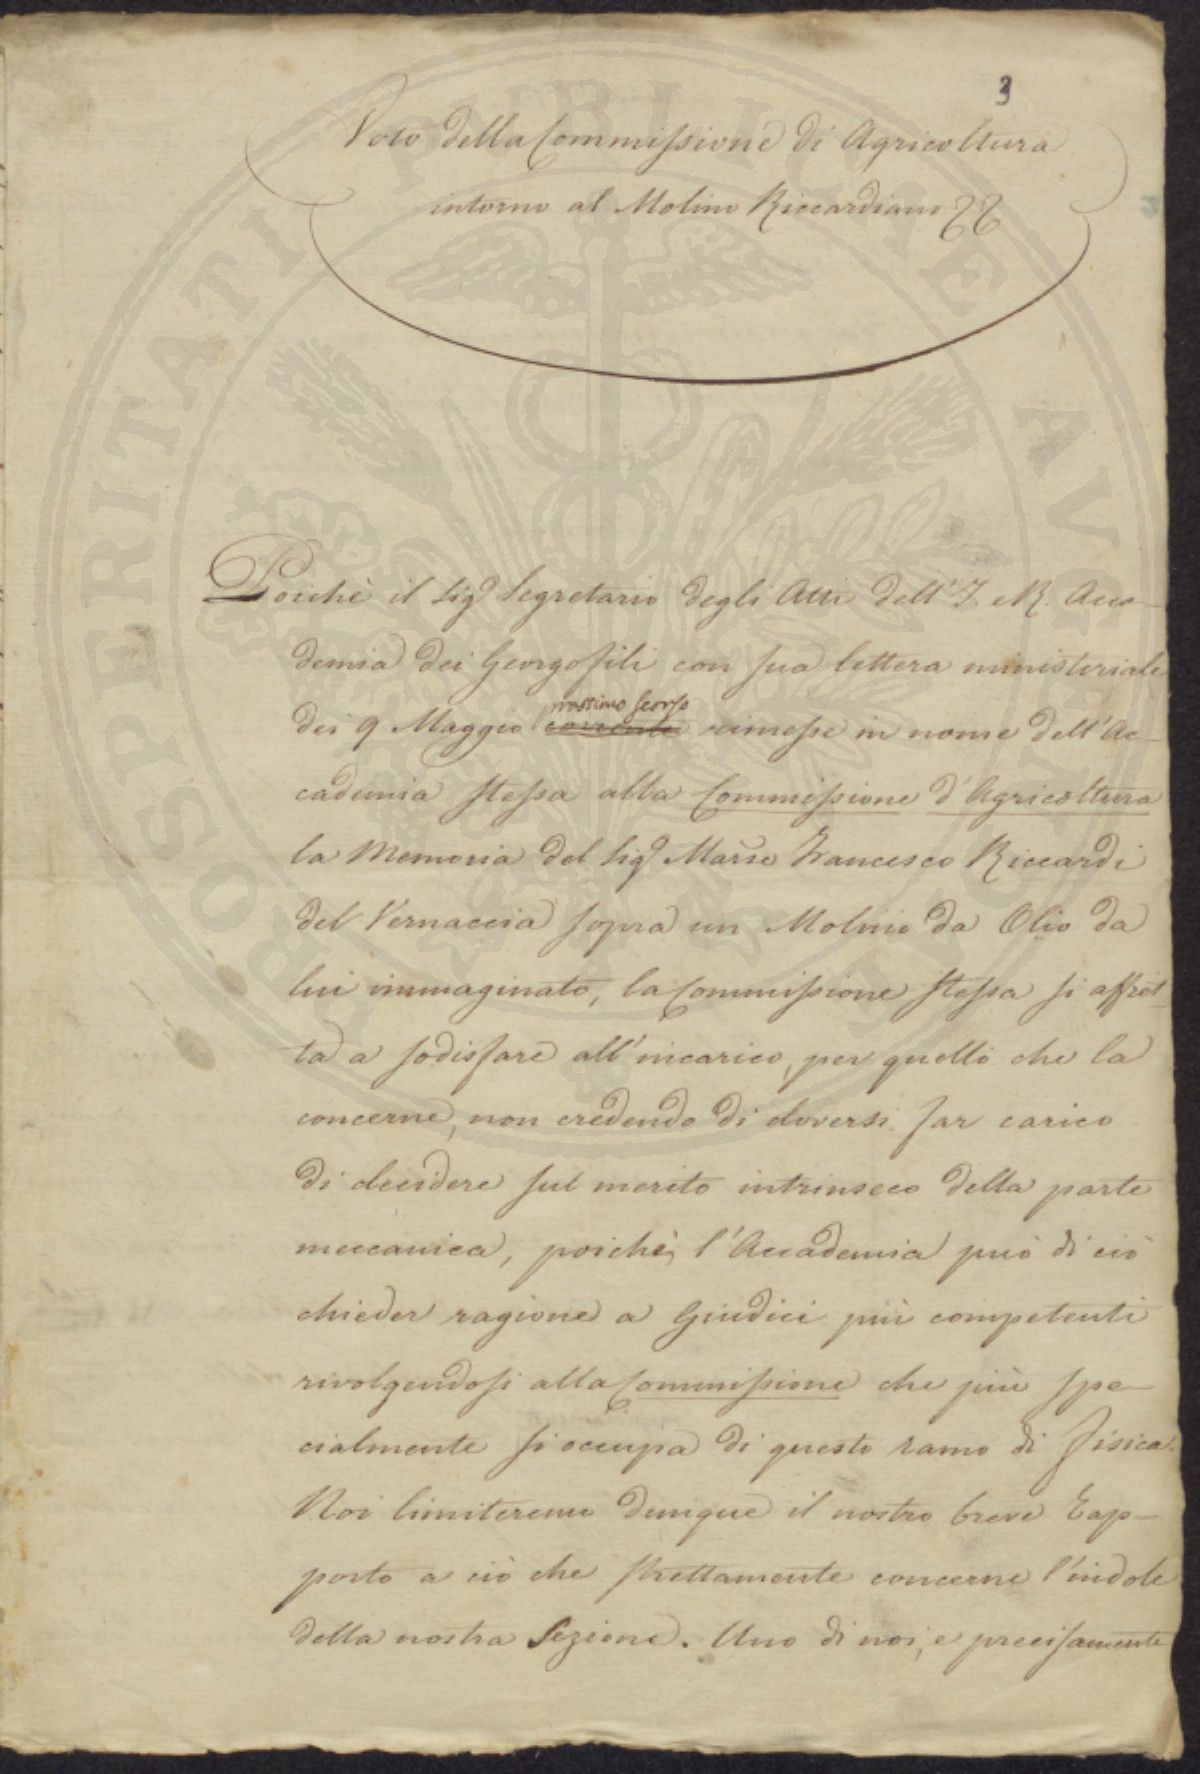 3
Voto della Commissione di Agricoltura
intorno al Molino Riccardiano
Poichè il Sigr Segretario degli Atti dell'I. e R. Acca-
demia dei Georgofili con sua lettera ministeriale
dei 9 Maggio prossimo scorso corrente rimesse in nome dell'Ac-
cademia stessa alla Commissione d'Agricoltura
la Memoria del Sigr Marse Francesco Riccardi
del Vernaccia sopra un Molino da Olio da
lui immaginato, la Commissione stessa si affret-
ta a sodisfare all'incarico, per quello che la
concerne, non credendo di doversi far carico
di decidere sul merito intrinseco della parte
meccanica, poichè, l'Accademia può di ciò
chieder ragione a Giudici più competenti
rivolgendosi alla Commissione che più spe-
cialmente si occupa di questo ramo di fisica.
Noi limiteremo dunque il nostro breve Rap-
porto a ciò che strettamente concerne l'indole
della nostra Sezione. Uno di noi, e precisamente
PROSPERITATI PUBLICAE AUGENDAE